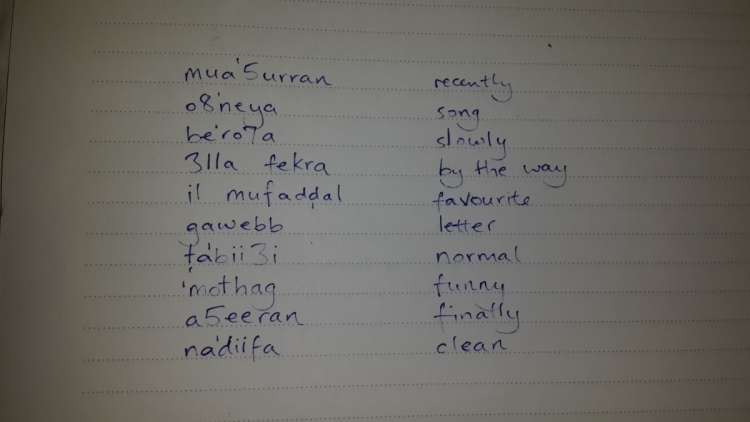 mua'5urran recently
o8'neya song
be'ro7a slowly
3lla fekra by the way
il mufaḍḍal favourite
gawebb letter
ṭabii3i normal
'mothag funny
a5eeran finally
na'diifa clean